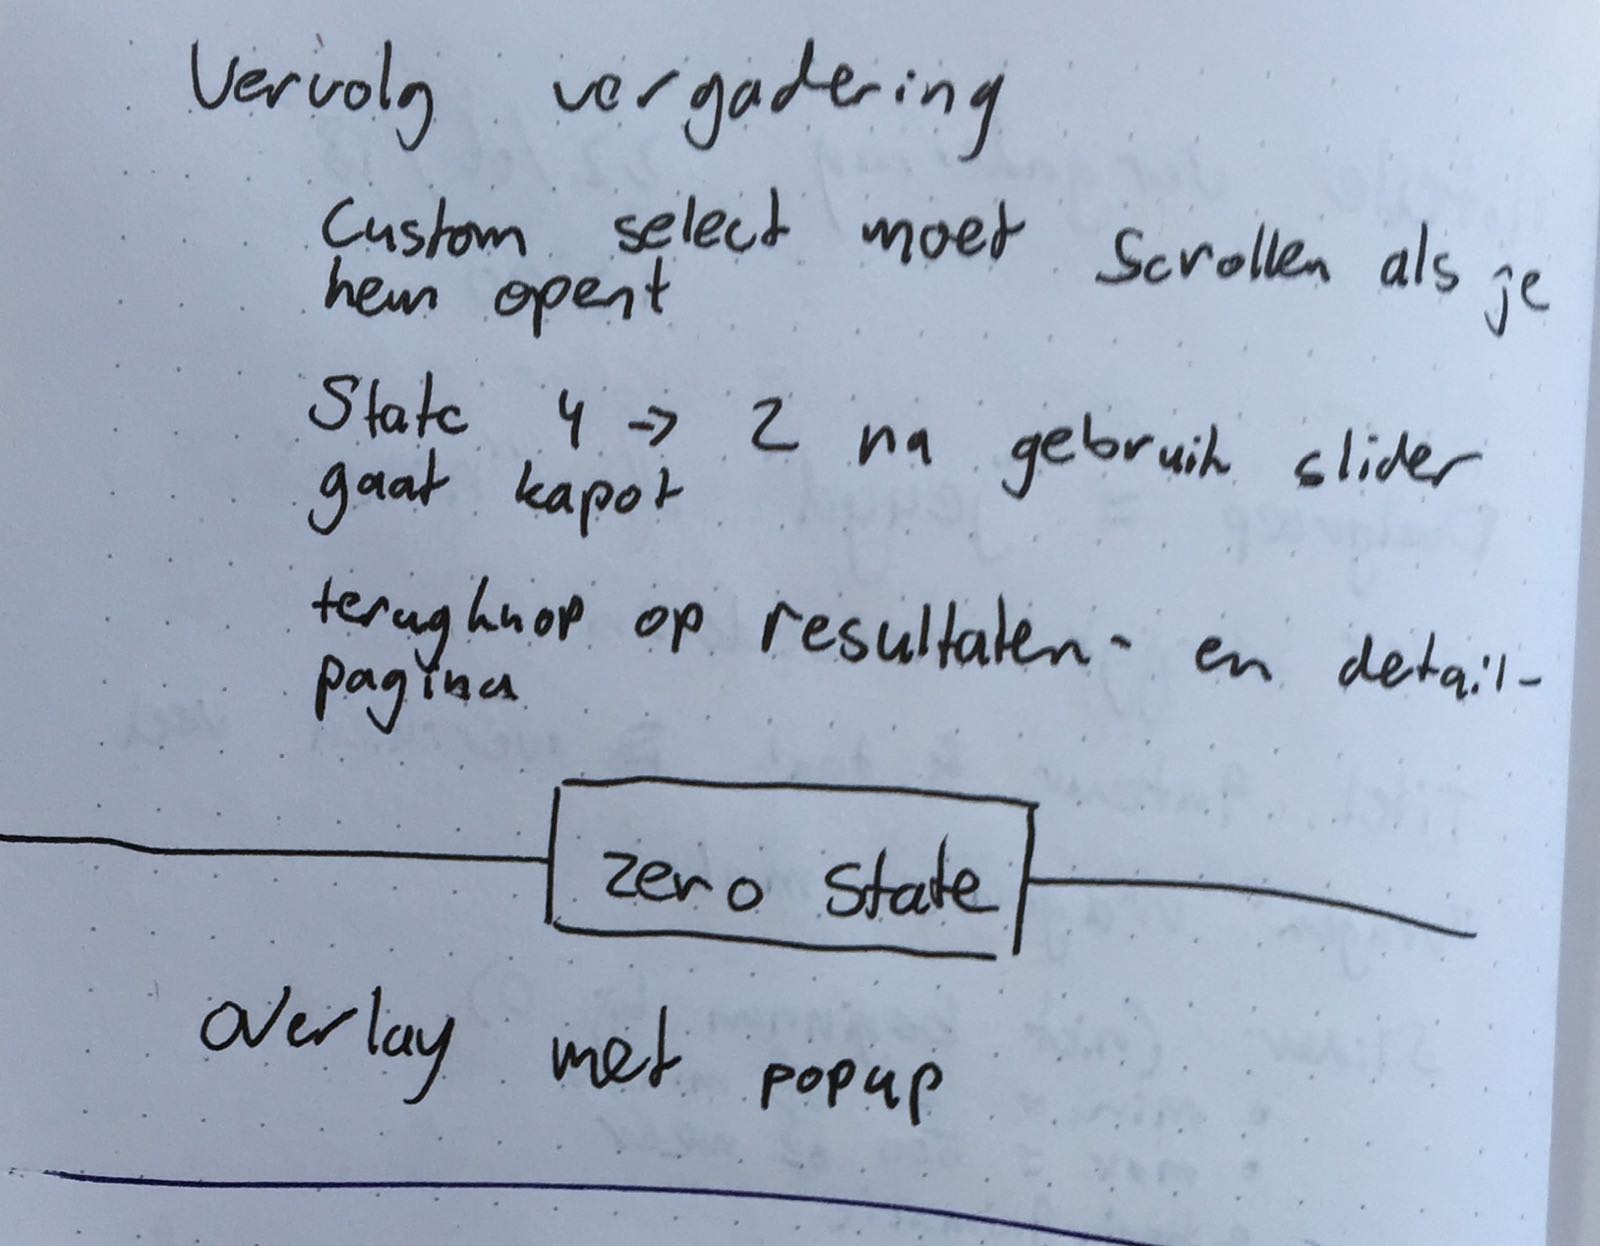 Vervolg vergadering
Custom select moet scrollen als je
hem opent
State 4 -> 2 na gebruik slider
gaat kapot
terugknop op resultaten- en detail-
pagina
zero state
overlay met popup